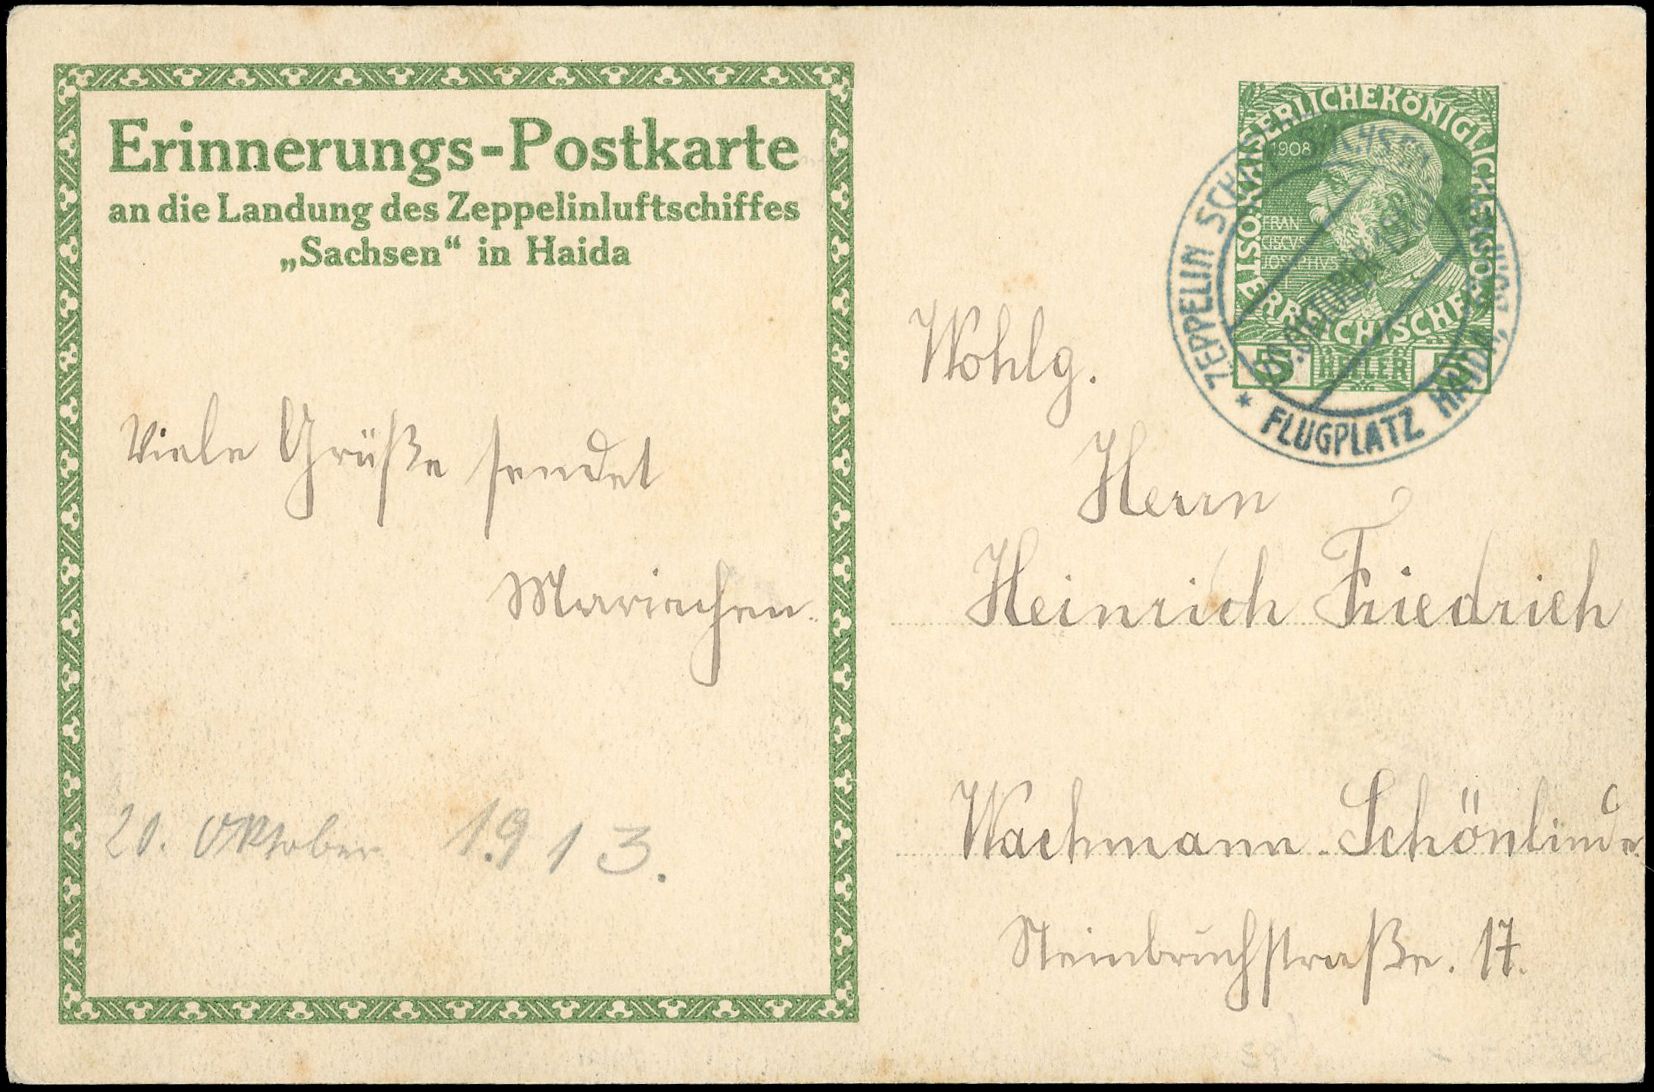 Erinnerungs-Postkarte
an die Landung des Zeppelinluftschiffes
„Sachsen“ in Haida
Viele Grüße sendet
Mariechen.
20. Oktober 1913.
KAISERLICHEKÖNIGLICHE
ÖSTERREICHISCHE
1908
FRAN
CISCVS
IOSEPHVS
5 HELLER 5
ZEPPELIN SCHIFF SACHSEN
★ FLUGPLATZ HAIDA
Wohlg.
Herrn
Heinrich Friedrich
Wachmann. Schönlinde
Steinbruchstraße. 17.